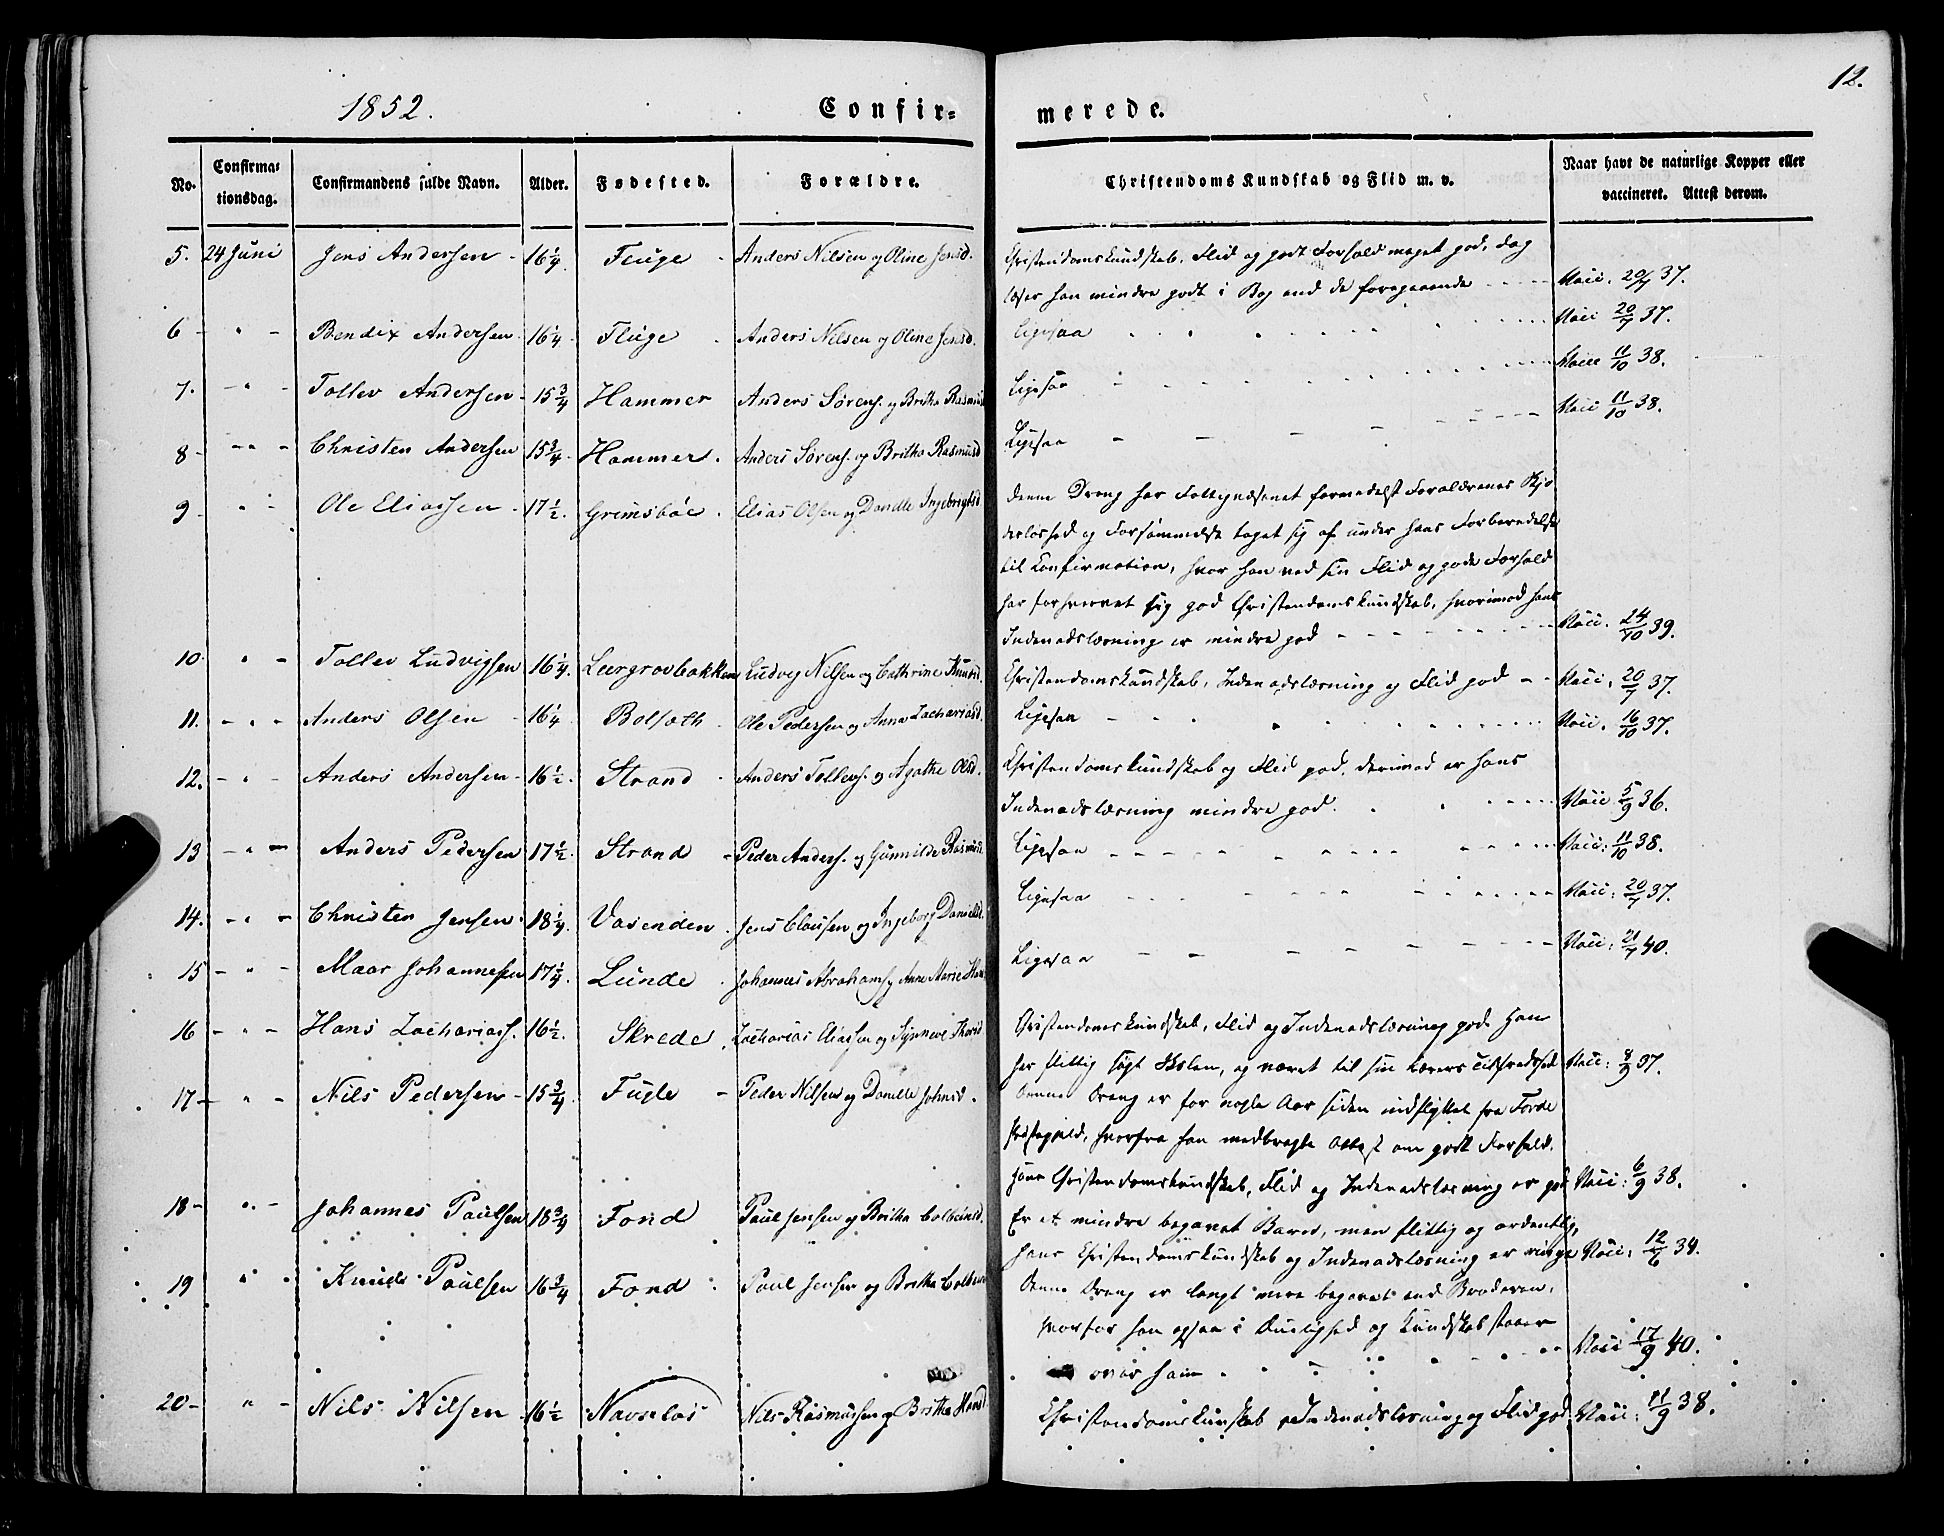 12.
1852.
Confir- merede.
No. Confirma-tionsdag. Confirmandens fulde Navn. Alder. Fødested. Forældre. Christendoms Kundskab og Flid m. v. Naar havt de naturlige Kopper eller vaccineret. Attest derom.
5. 24 Juni Jens Andersen - 16 1/4. Fluge - Anders Nilsen og Oline Jensd. Christendomskundskab, Flid og godt Forhold meget god, dog
læser han mindre godt i Bog end de foregaaende - - - - Vacc. 20/7 37.
6 - " - Bendix Andersen 16 1/4 Fluge - Anders Nilsen og Oline Jensd. Ligesaa Vacc 20/7 37.
7. - " - Tollev Andersen - 15 3/4 Hammer Anders Sørens. og Britha Rasmusd Ligesaa Vacc 11/10 38.
8 - " - Christen Andersen 15 3/4 Hammer. Anders Sørens. og Britha Rasmusd Ligesaa Vacc 11/10 38.
9 - " - Ole Eliassen - 17 1/2. Grimsböe - Elias Olsen og Dordle Ingebrigtsd Denne Dreng har Fattigvæsenet formedelst Forældrenes
og Forsømmelse taget sig af under hans Forberedelse
til Confirmation, hvor han ved sin Flid og gode Forhold
har forhvervet sig god Christendomskundskab, hvorimod hans
Indenadslæsning er mindre god - - - - Vacc. 24/10 39.
10. " - Tollev Ludvigsen 16 1/4. Leergrovbakken Ludvig Nilsen og Cathrine Knudsd. Christendomskundskab, Indenadslæsning og Flid god - - Vacc. 20/7 37.
11. - " - Anders Olsen - 16 1/4 Bolsæth - Ole Pedersen og Anna Zachariasd. Ligesaa Vacc. 16/10 37.
12. - " - Anders Andersen - 16 1/2. Strand - Anders Tollevs. og Agathe Olsd. Christendomskundskab og Flid god. Derimod er hans
Indenadslæsning mindre god. Vacc. 5/9 36.
13 - " - Anders Pedersen 17 1/2. Strand - Peder Anders. og Gunnilde Rasmusd. Ligesaa - - - - Vacc: 11/10 38.
14. - " - Christen Jensen 18 1/4. Vasenden. Jens Clausen og Ingeborg Danielsd. Ligesaa - - - Vacc: 20/7 37.
15 - " - Maar Johannesen 17 1/4. Lunde. Johannes Abrahams. og Anne Marie Ligesaa - - - Vacc: 21/7 40.
16 - " - Hans Zachariass. 16 1/2. Skrede. Zacharias Eliassen og Synneve Christendomskundskab, Flid og Indenadslæsning god. Han
har flittig søgt Skolen, og været til sin Lærers Tilfredshed Vacc: 8/9 37.
17 - " - Nils Pedersen - 15 3/4 Fugle - Peder Nilsen og Dordle Johnsd. Denne Dreng er for nogle Aar siden indflyttet fra Førde
Præstegjeld, hvorfra han medbragte Attest om godt Forhold.
Hans Christendomskundskab, Flid og Indenadslæsning er god Vacc: 6/9 38.
18 - " - Johannes Paulsen 18 3/4 Fond Paul Jensen og Britha Colbeinsd. Er et mindre begavet Barn, men flittig og ordentlig,
hans Christendomskundskab og Indenadslæsning er ringe Vacc: 12/6 34.
19 " - Knud Paulsen 16 3/4 Fond Paul Jensen og Britha Colbeins Denne Dreng er langt mere begavet end Broderen,
hvorfor han ogsaa i Duelighed og Kundskab staaer
over ham Vacc 17/9 40.
20 - " - Nils Nilsen 16 1/2 Navseløs Nils Rasmussen og Britha Hansd. Christendomskunskab Indenadslæsning og Flid god Vacc: 11/9 38.